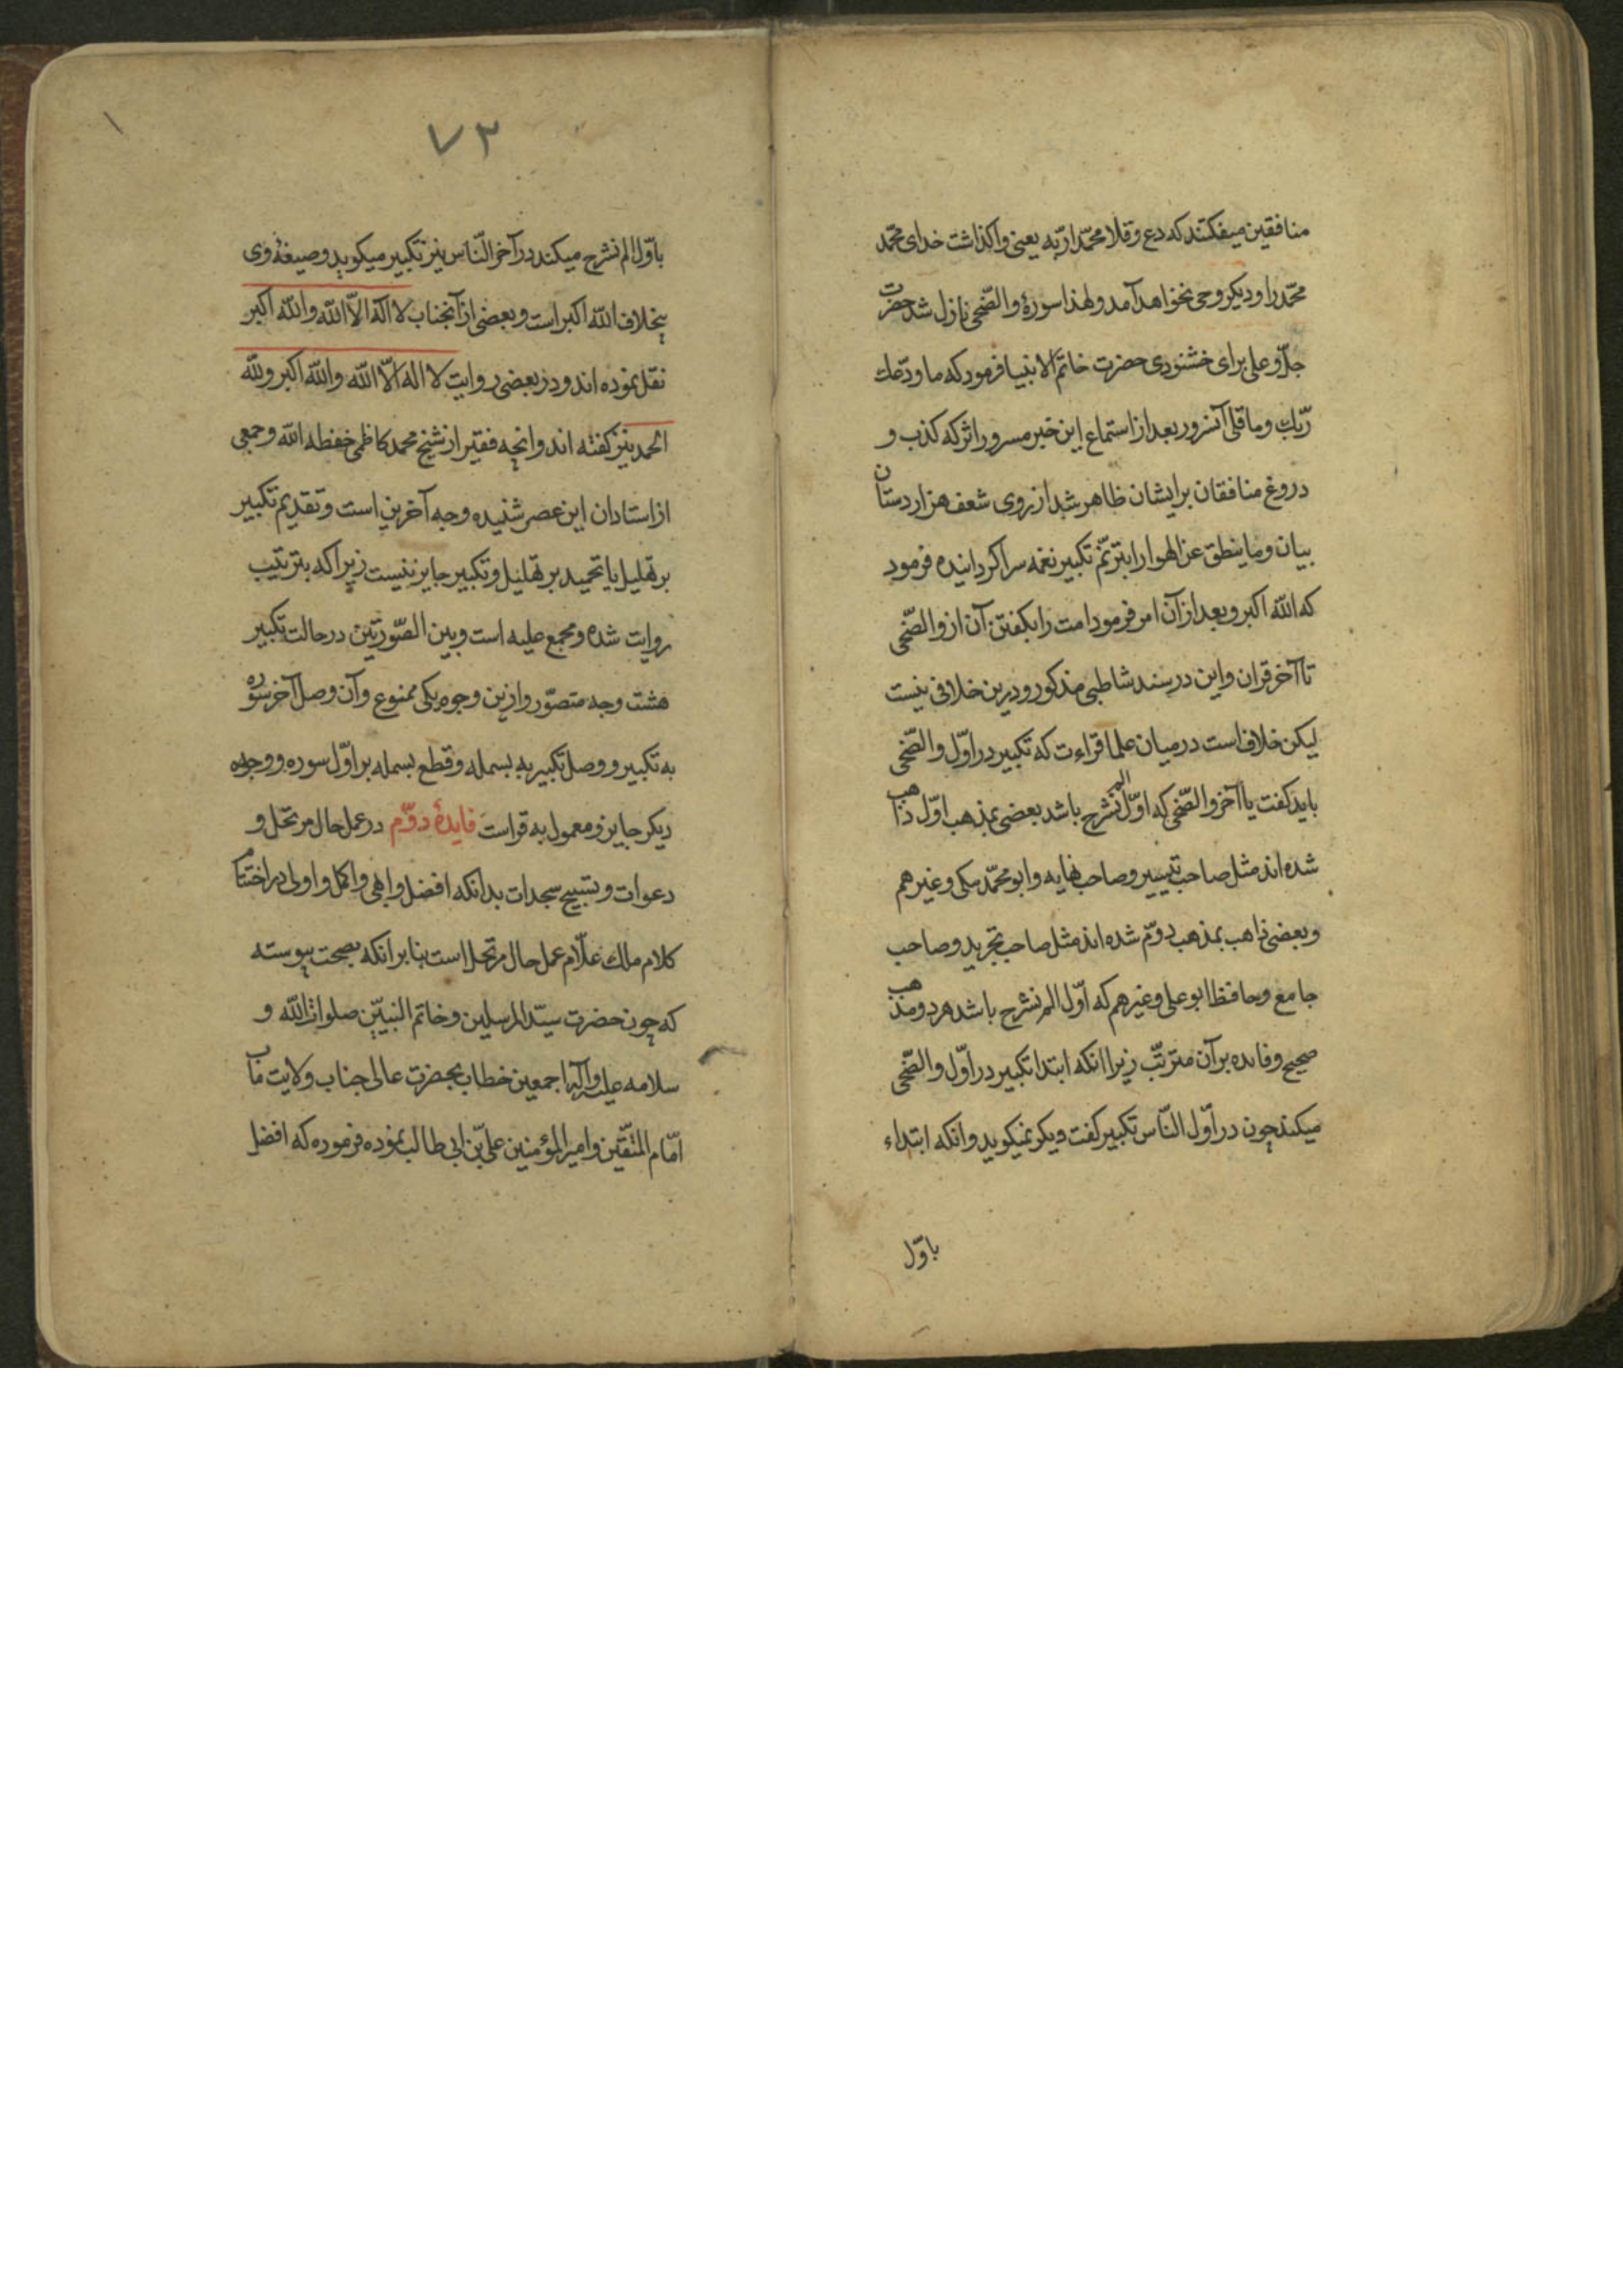 منافقین میفکتند که دع وقلا محمّدا ربّه یعنی واکذاشت خدای محمّد
محمّد را و دیکر وحی نخواهد آمد ولهذا سورهٔ والضّحی نازل شد حضرت
جلّ و علی برای خشنودی حضرت خاتم الانبیا فرمود که ما ودّعك
ربّك وما قلی آنسرور بعد از استماع این خبر مسرور اثر که کذب و
دروغ منافقان بر ایشان ظاهر شد از روی شعف هزار دستان
بیان وما ینطق عن الهوا را بترنّم تکبیر نغمه سرا کردانیده فرمود
که الله اکبر و بعد از آن امر فرمود امت را بکفتن آن از والضّحی
تا آخر قران واین در سند شاطبی مذکور و درین خلافی نیست
لیکن خلاف است در میان علما قراءت که تکبیر در اوّل والضّحی
باید کفت یا آخر والضّحی که اوّل الم نشرح باشد بعضی بمذهب اوّل ذاهب
شده اند مثل صاحب تیسیر و صاحب نهایه وابو محمّد مکی وغیرهم
و بعضی ذاهب بمذهب دوّم شده اند مثل صاحب تجرید و صاحب
جامع وحافظ ابو علی وغیرهم که اوّل الم نشرح باشد هر دو مذهب
صحیح وفایده بر آن مترتّب زیرا انکه ابتدا تکبیر در اوّل والضّحی
میکند چون در اوّل النّاس تکبیر کفت دیکر نمیکوید وانکه ابتداء
باوّل
٧٢
١
باوّل الم نشرح میکند در آخر النّاس نیز تکبیر میکوید وصیغهٔ وی
بخلاف الله اکبر است و بعضی از آنجناب لا اله الاّ الله والله اکبر
نقل نموده اند و در بعضی روایت لا اله الاّ الله والله اکبر ولله
الحمد نیز کفته اند وانچه فقیر از شیخ محمد کاظمی حفظه الله وجمعی
از استادان این عصر شنیده وجه آخرین است وتقدیم تکبیر
بر تهلیل یا تحمید بر تهلیل وتکبیر جایز نیست زیرا که بترتیب
روایت شده و مجمع علیه است و بین الصّورتین در حالت تکبیر
هشت وجه متصوّر وازین وجوه یکی ممنوع وآن وصل آخر سوره
به تکبیر و وصل تکبیر به بسمله وقطع بسمله بر اوّل سوره و وجوه
دیکر جایز و معمول به قراست فایدهٔ دوّم در عمل حال مرتحل و
دعوات وتسبیح سجدات بدانکه افضل وابهی واکمل واولی در اختتام
کلام ملك علاّم عمل حال مرتحل است بنا بر انکه بصحت پیوسته
که چون حضرت سیّد المرسلین وخاتم النبیّین صلوات الله و
سلامه علیه وآله اجمعین خطاب بحضرت عالی جناب ولایت مآب
امّام المتّقین وامیر المؤمنین علی بّن ابی طالب نموده فرموده که افضل